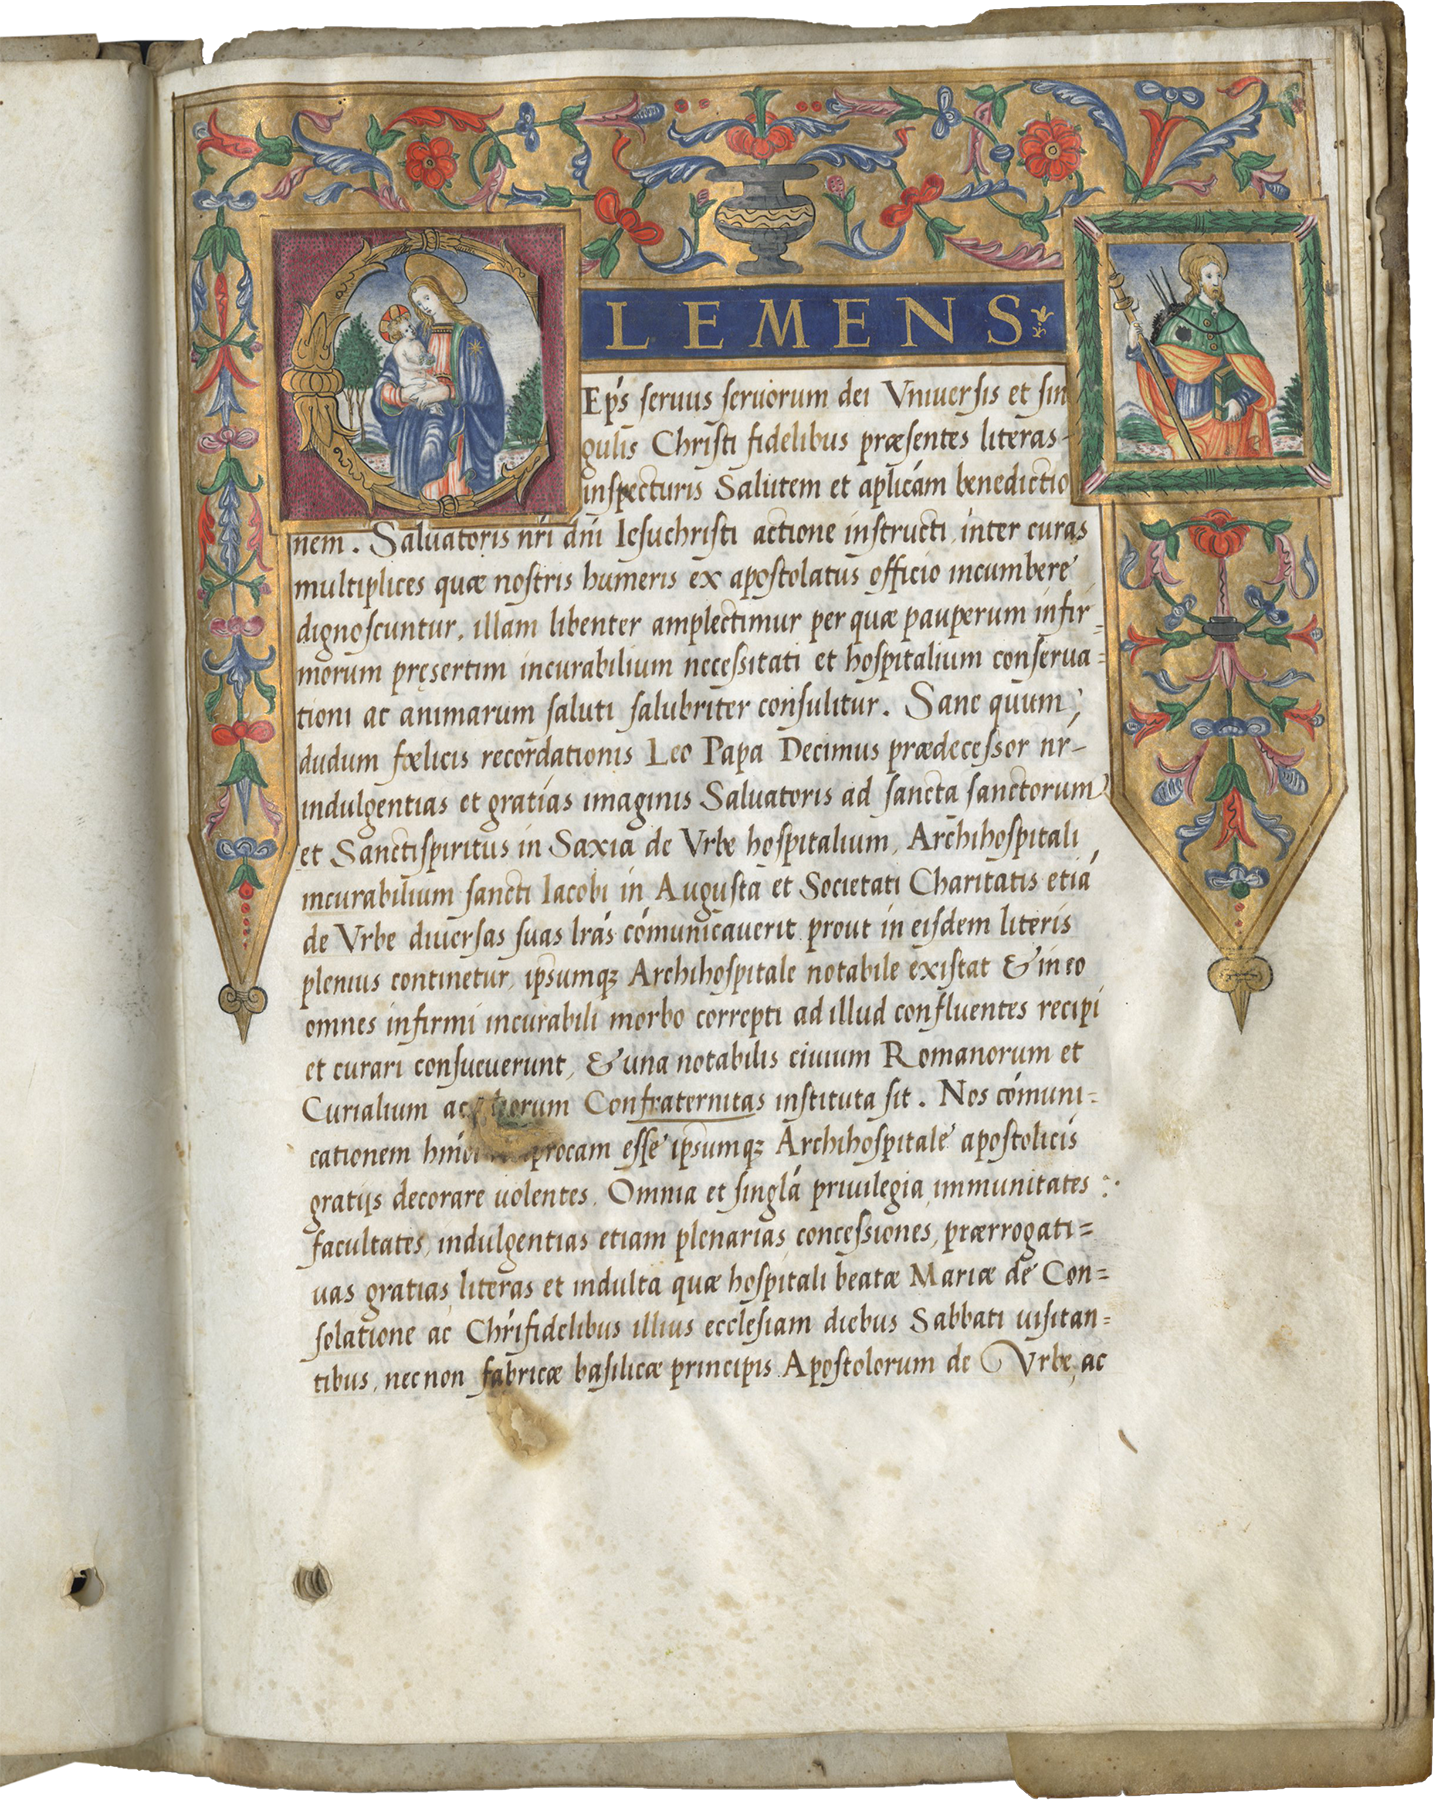 CLEMENS
Ep̃s seruus seruorum dei Vniuersis et sin
gulis Christi fidelibus præsentes literas-
inspecturis Salutem et apl̃icám benedictio
nem. Saluatoris nr̃i dñi Iesuchristi actione instructi, inter curas
multiplices quæ nostris humeris ex apostolatus officio incumbere
dignoscuntur, illam libenter amplectimur per quæ pauperum infir=
morum pręsertim incurabilium necessitati et hospitalium conserua=
tioni ac animarum saluti salubriter consulitur. Sane quum,
dudum fœlicis recordationis Leo Papa Decimus prædecessor nr-
indulgentias et gratias imaginis Saluatoris ad sancta sanctorum
et Sanctispiritus in Saxia de Vrbe hospitalium, Archihospitali
incurabilium sancti Iacobi in Augusta et Societati Charitatis etiá
de Vrbe diuersas suas lr̃as cómunicauerit prout in eisdem literis
plenius continetur, ipsumqꝫ Archihospitale notabile existat & in eo
omnes infirmi incurabili morbo correpti ad illud confluentes recipi
et curari consueuerunt, & una notabilis ciuium Romanorum et
Curialium ac orum Confraternitas instituta sit. Nos cómuni=
cationem procam esse ipsumqꝫ Archihospitale apostolicis
gratijs decorare uolentes. Omnia et singlá priuilegia, immunitates
facultates, indulgentias etiam plenarias concessiones, prærrogati=
uas gratias literas et indulta quæ hospitali beatæ Mariæ de Con=
solatione ac Chr̃ifidelibus illius ecclesiam diebus Sabbati uisitan=
tibus, necnon fabricæ basilicæ principis Apostolorum de Vrbe, ac